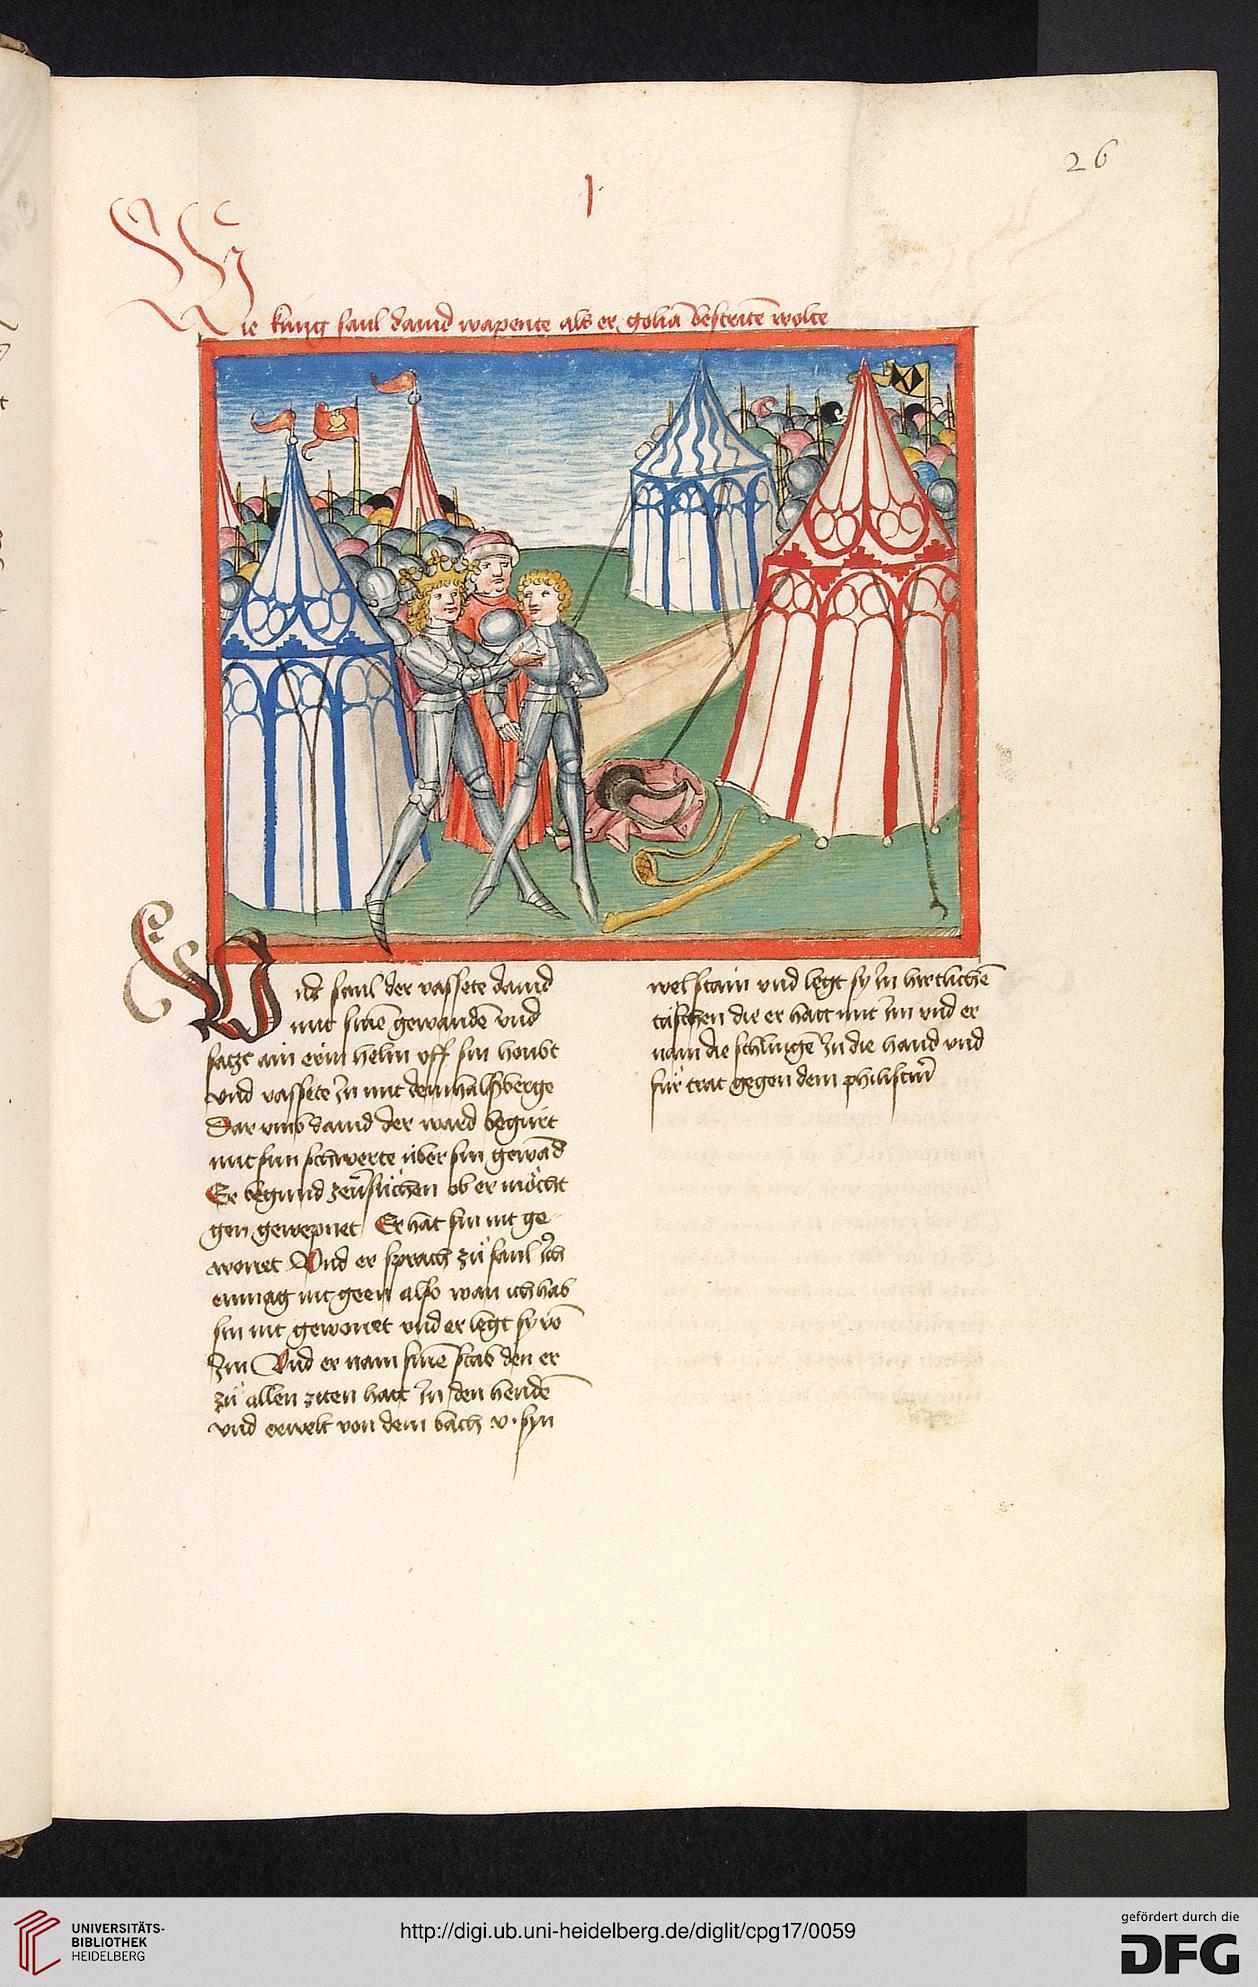 26
J
Wie küng saul dauid wapente als er golia bestriten wolte
Und saul der vassete dauid
mit sinē gewandē vnd
satzt ain erin helm vff sin houbt
vnd vassete Jn mit dem halsberge
Dar vmb dauid der ward begürt
mit sim schwerte über sin gewād
Er begund zeūsůchen ob er möcht
gen gewepnet Er hat sin nit ge
wonet Vnd er sprach zů saul Jch
enmag nit geen also wan ich hab
sin nit gewonet vnd er legt sy vō
Jm Vnd er nam sinē stab den er
zů allen ziten hatt Jn den hendē
vnd erwelt von dem bach v. syn
wel stain vnd legt sy Jn hirtlichē
täschen die er hatt mit Jm vnd er
nam die schlingē Jn die hand vnd
für trat gegen dem philistin̄
UNIVERSITÄTS-
BIBLIOTHEK
HEIDELBERG
http://digi.ub.uni-heidelberg.de/diglit/cpg17/0059
gefördert durch die
DFG